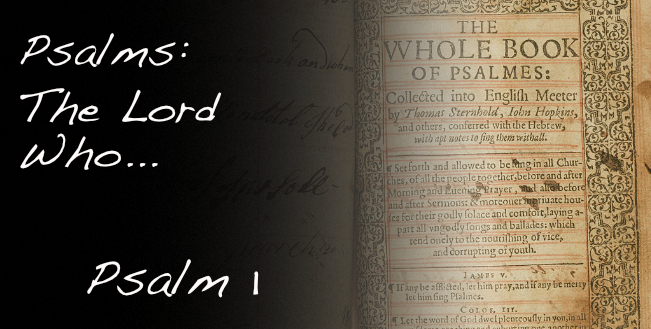 Psalms:
The Lord
Who...
Psalm 1
THE
WHOLE BOOK
OF PSALMES:
Collected into English Meeter
by Thomas Sternhold, Iohn Hopkins,
and others, conferred with the Hebrew,
with apt notes to sing them withall.
¶ Set forth and allowed to be sung in all Chur-
ches, of all the people together, before and after
Morning and Euening Prayer, and also before
and after Sermons: & moreouer in priuate hou-
ses for their godly solace and comfort, laying a-
part all vngodly songs and ballades: which
tend onely to the nourishing of vice,
and corrupting of youth.
IAMES V.
¶ If any be afflicted, let him pray, and if any be merry
let him sing Psalmes.
COLOS. III.
¶ Let the word of God dwel plenteously in you, in all